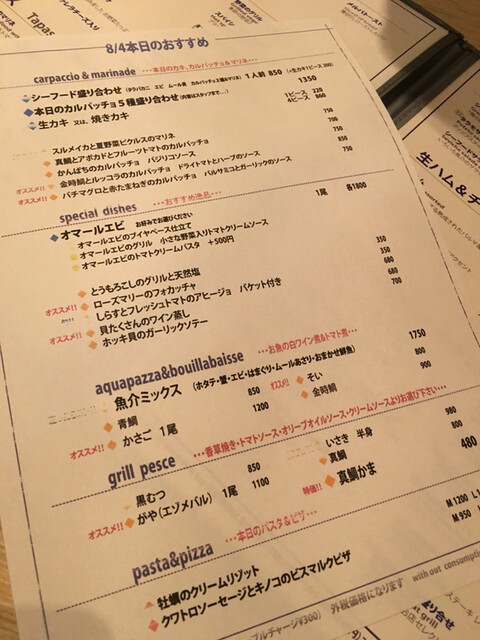 8/4本日のおすすめ
carpaccio & marinade ・・・本日のカキ、カルパッチョ&マリネ・・・
シーフード盛り合わせ (タラバカニ エビ ムール貝 カルパッチョ2種&マリネ) 1人前 850 (+生カキ1ピース 200)
本日のカルパッチョ5種盛り合わせ (内容はスタッフまで…) 1350
生カキ 又は、焼きカキ 1ピース 220
4ピース 860
スルメイカと夏野菜ピクルスのマリネ 750
真鯛とアボカドとフルーツトマトのカルパッチョ 700
かんぱちのカルパッチョ バジリコソース 750
オススメ!! 金時鯛とルッコラのカルパッチョ ドライトマトとハーブのソース 850
オススメ!! バチマグロと赤たまねぎのカルパッチョ バルサミコとガーリックのソース 750
special dishes ・・・おすすめ逸品・・・
オマールエビ お好みでお選びください 1尾 各1800
オマールエビのブイヤベース仕立て
オマールエビのグリル 小さな野菜入りトマトクリームソース
オマールエビのトマトクリームパスタ +500円
とうもろこしのグリルと天然塩 350
オススメ!! ローズマリーのフォカッチャ 250
しらすとフレッシュトマトのアヒージョ バケット付き 680
オススメ!! 貝たくさんのワイン蒸し 680
ホッキ貝のガーリックソテー 700
aquapazza&bouillabaisse ・・・お魚の白ワイン煮&トマト煮・・・
魚介ミックス (ホタテ・蟹・エビ・はまぐり・ムールあさり・おまかせ鮮魚) 1750
青鯛 850 オススメ!! そい 800
オススメ!! かさご 1尾 1200 金時鯛 900
grill pesce ・・・香草焼き・トマトソース・オリーブオイルソース・クリームソースよりお選び下さい・・・
黒むつ 850 いさき 半身 980
オススメ!! がや(エゾメバル) 1尾 1100 真鯛 800
特価!! 真鯛かま 480
pasta&pizza ・・・本日のパスタ&ピザ・・・
牡蠣のクリームリゾット M 1200 L
クワトロソーセージとキノコのビスマルクピザ M 950 L
ブルチャージ¥300) 外税価格になります with out consumptio
Tapas
生ハム&チ